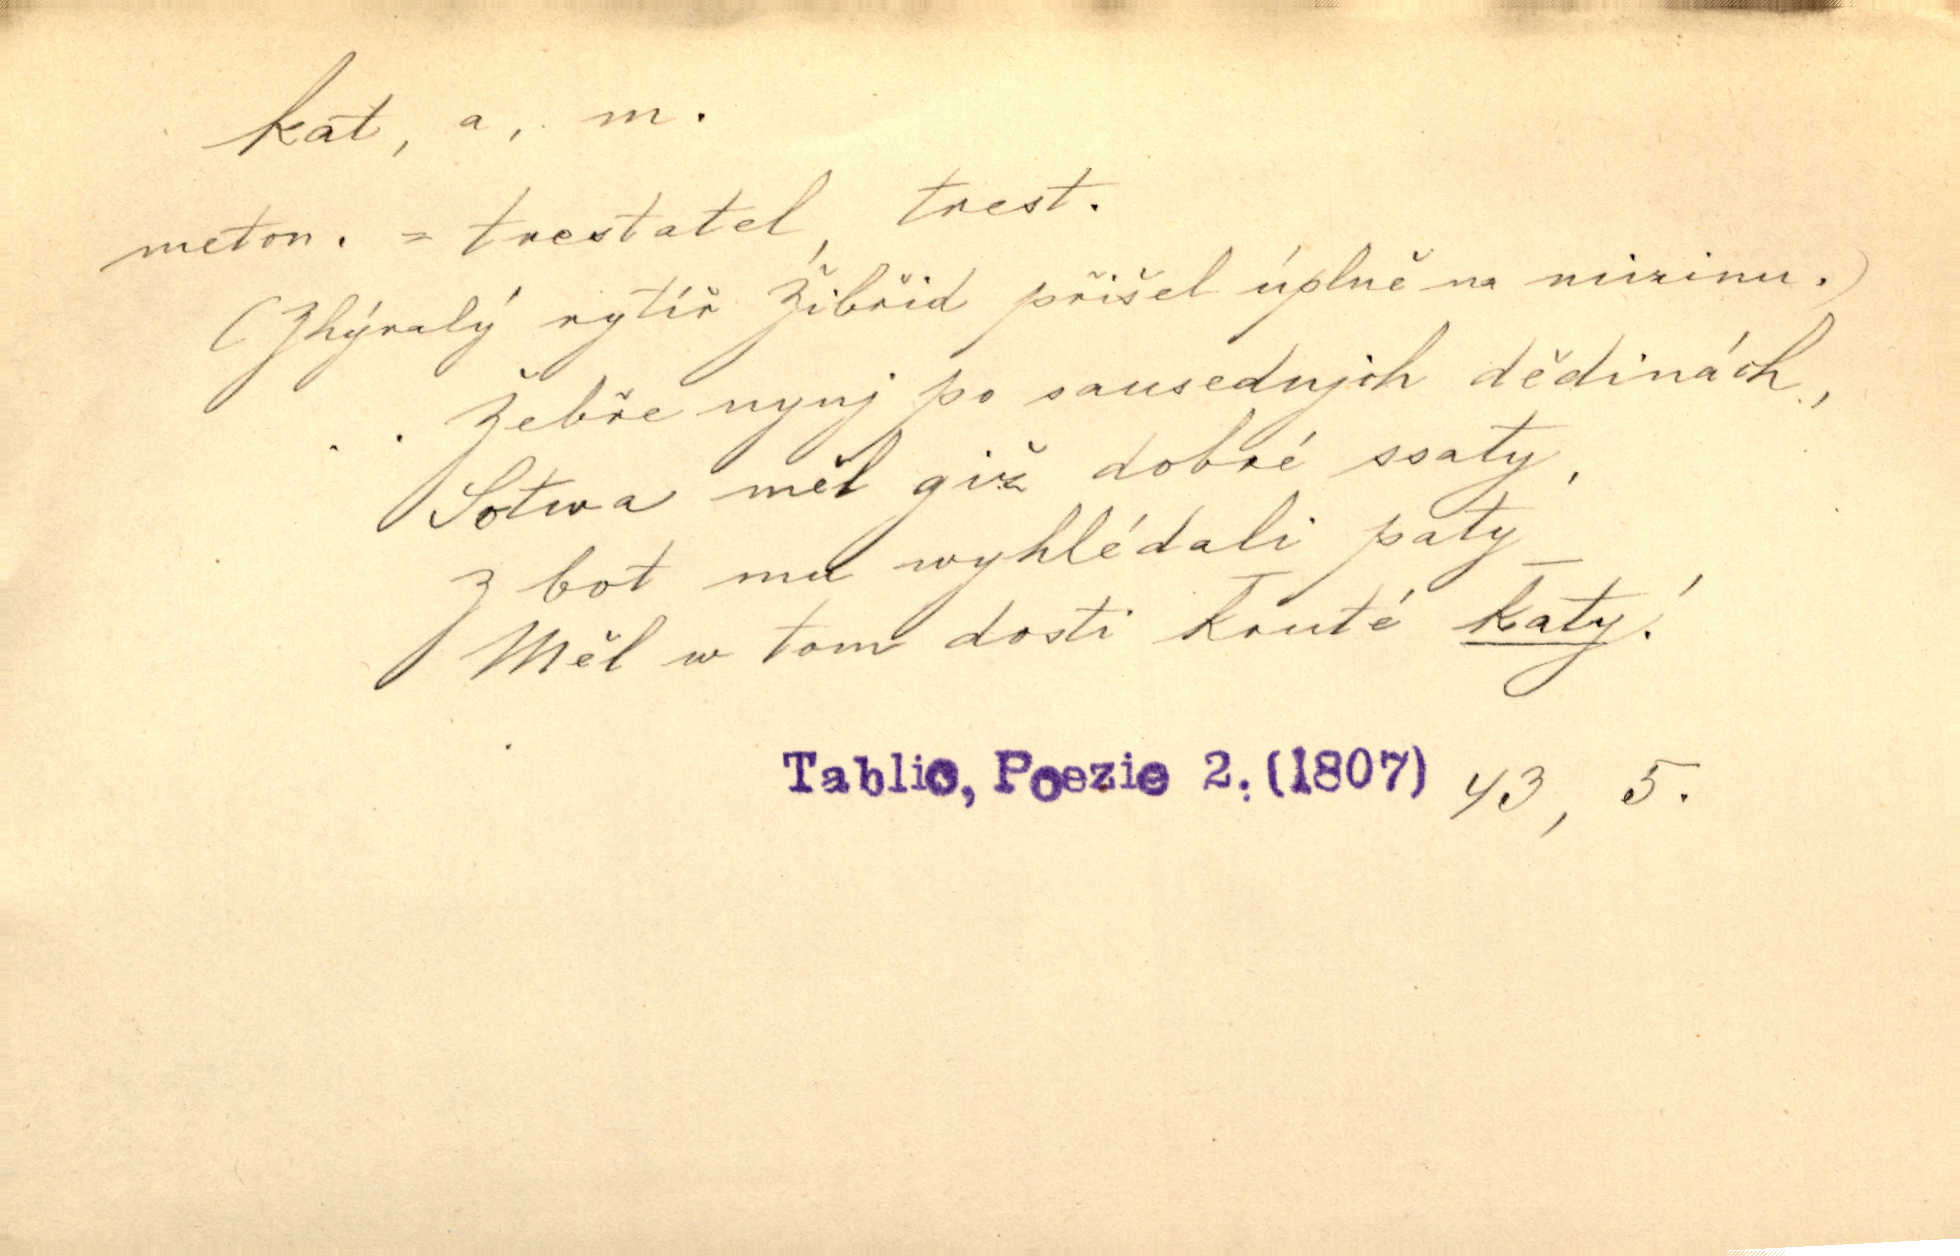 kat, a, m.
meton. = trestatel, trest.
(Zhýralý rytíř Žibřid přišel úplně na mizinu.)
Žebře nynj po sausednjch dědinách,
Sotwa měl giž dobré ssaty,
Z bot mu wyhlédali paty –
Měl w tom dosti kruté katy!
Tablic, Poezie 2. (1807) 43, 5.